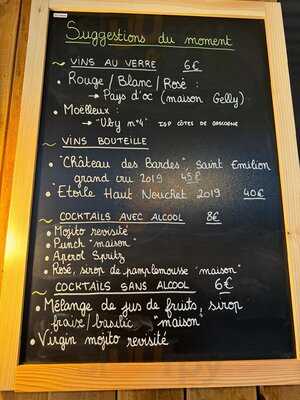 Suggestions du moment
~ VINS AU VERRE 6€
• Rouge / Blanc / Rosé :
→ Pays d'oc (maison Gelly)
• Moëlleux :
→ "Uby n°4" IGP CÔTES DE GASCOGNE
~ VINS BOUTEILLE
• "Château des Bardes", Saint Emilion
grand cru 2019 45€
• "Etoile Haut Nouchet" 2019 40€
~ COCKTAILS AVEC ALCOOL 8€
• Mojito revisité
• Punch "maison"
• Aperol Spritz
• Rosé, sirop de pamplemousse "maison"
~ COCKTAILS SANS ALCOOL 6€
• Mélange de jus de fruits, sirop
fraise/basilic "maison"
• Virgin mojito revisité